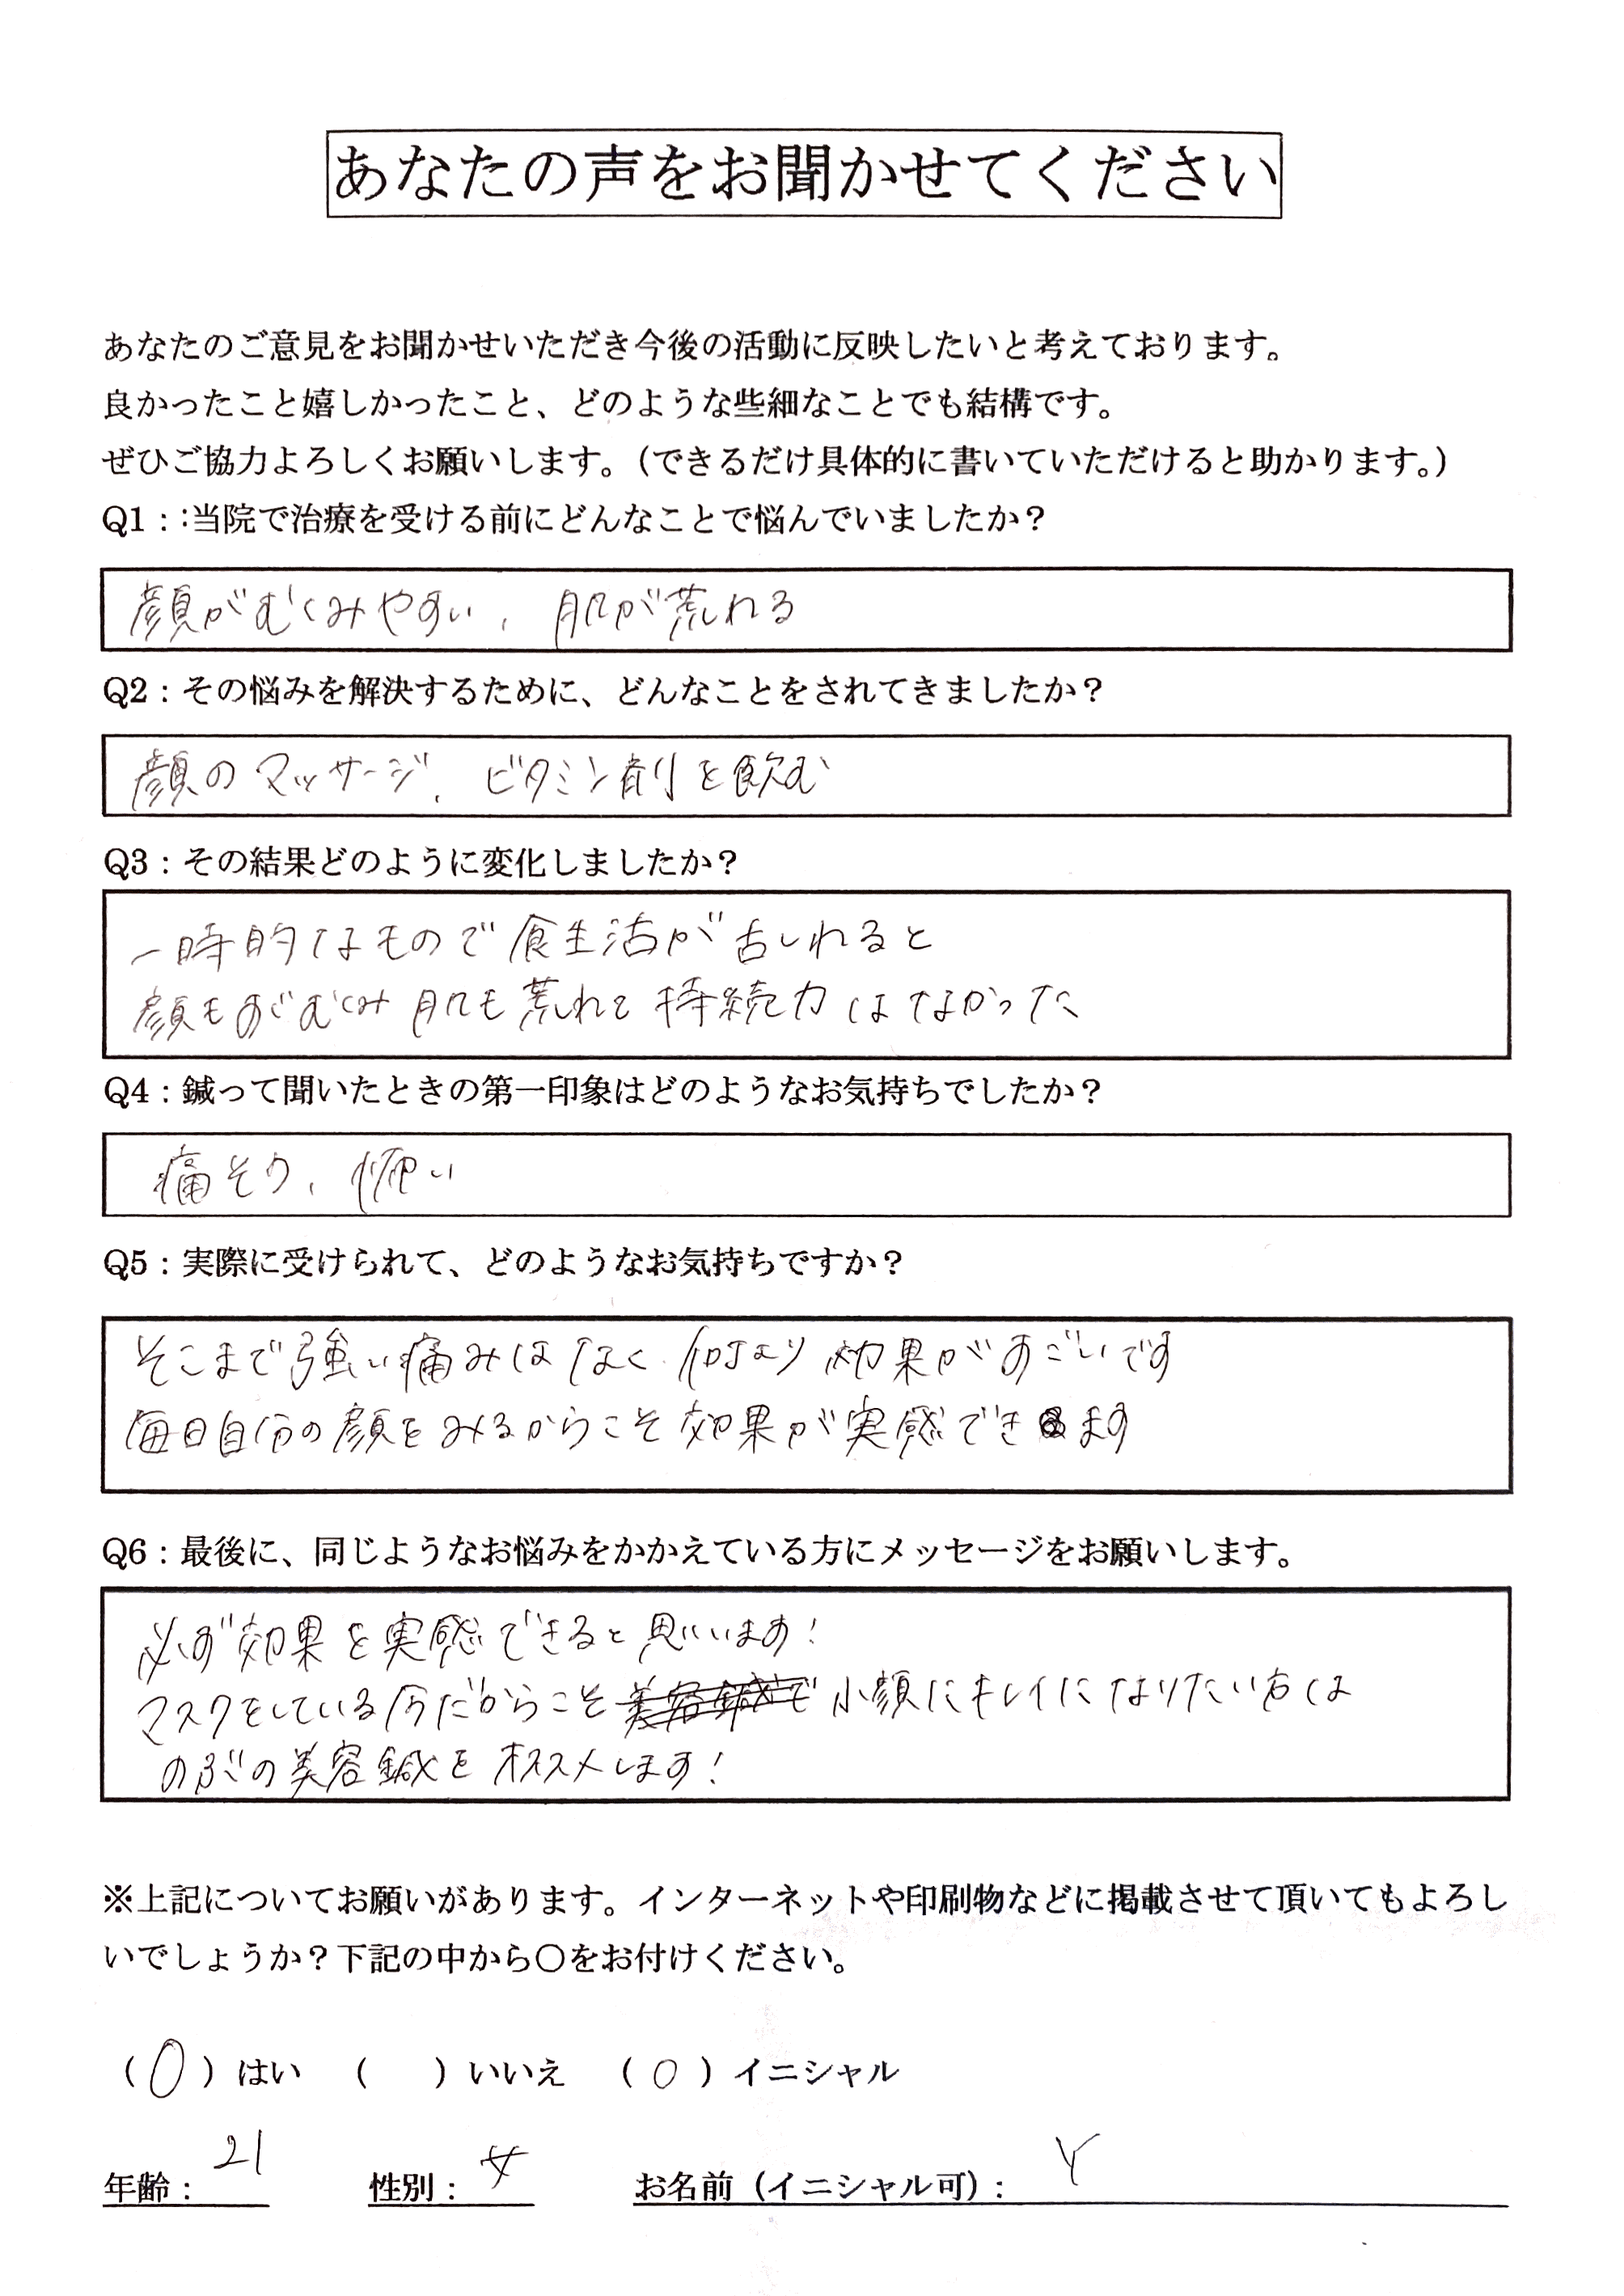 あなたの声をお聞かせてください
あなたのご意見をお聞かせいただき今後の活動に反映したいと考えております。
良かったこと嬉しかったこと、どのような些細なことでも結構です。
ぜひご協力よろしくお願いします。(できるだけ具体的に書いていただけると助かります。)
Q1：:当院で治療を受ける前にどんなことで悩んでいましたか？
顔がむくみやすい、肌が荒れる
Q2：その悩みを解決するために、どんなことをされてきましたか？
顔のマッサージ、ビタミン剤を飲む
Q3：その結果どのように変化しましたか？
一時的なもので食生活が乱れると
顔もすぐむくみ肌も荒れて持続力はなかった
Q4：鍼って聞いたときの第一印象はどのようなお気持ちでしたか？
痛そう、怖い
Q5：実際に受けられて、どのようなお気持ちですか？
そこまで強い痛みはなく何より効果がすごいです
毎日自分の顔をみるからこそ効果が実感できます
Q6：最後に、同じようなお悩みをかかえている方にメッセージをお願いします。
必ず効果を実感できると思います！
マスクをしている今だからこそ美容鍼で小顔にキレイになりたい方は
のぶの美容鍼をオススメします！
※上記についてお願いがあります。インターネットや印刷物などに掲載させて頂いてもよろし
いでしょうか？下記の中から〇をお付けください。
（○）はい （　）いいえ （○）イニシャル
年齢：21 性別：女 お名前（イニシャル可）：Y